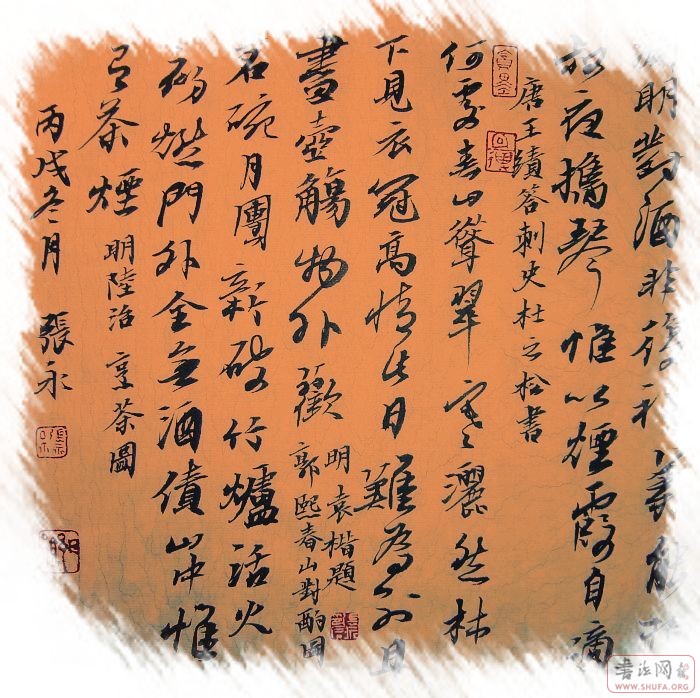 明對酒非復礼義能
叔夜攜琴惟以煙霞自適
唐王績答刺史杜之松書
何處春山聳翠寒灑然林
下見衣冠高情此日難為別日
盡壺觴物外歡
明袁楷題
郭熙春山對酌圖
茗碗月團新破竹爐活火
初燃門外全無酒債山中惟
有茶煙 明陸治 烹茶圖
丙戌冬月 張永
書法网
WWW.SHUFA.ORG